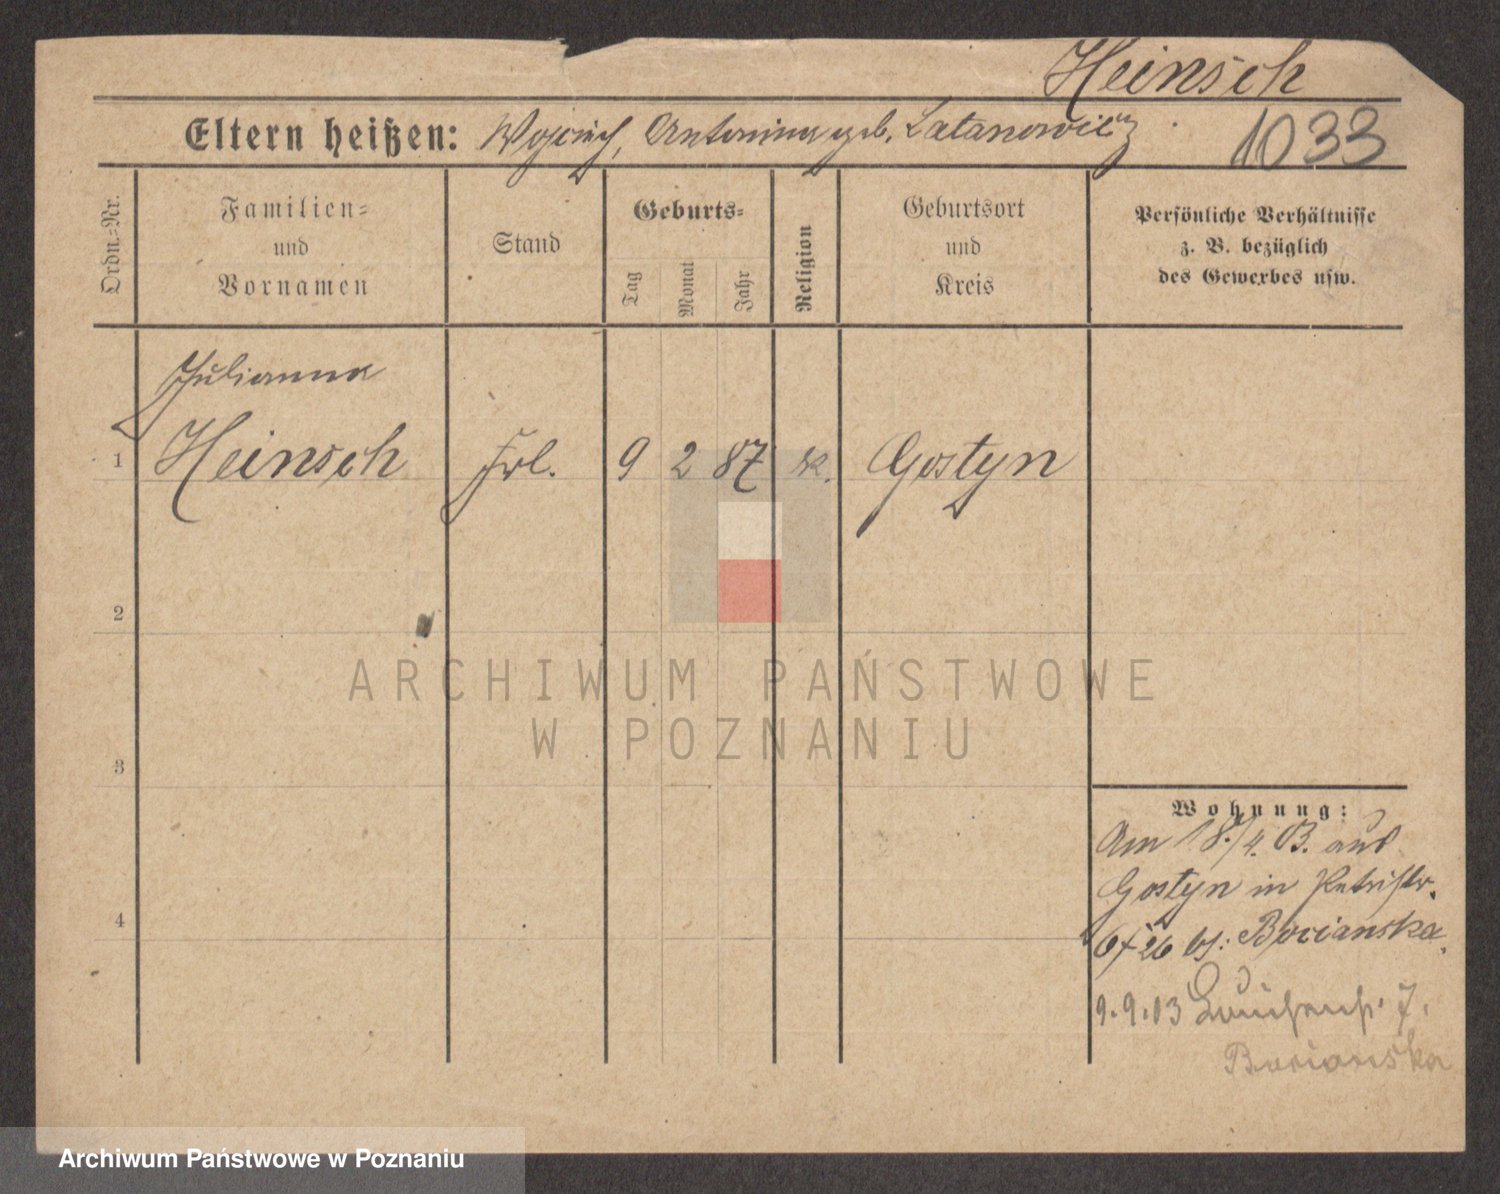 Heinsch
Eltern heißen: Wojciech, Antonina geb. Latanowicz
1033
Ordn.-Nr.
Familien- und Vornamen
Stand
Geburts-
Tag
Monat
Jahr
Religion
Geburtsort und Kreis
Persönliche Verhältnisse
z. B. bezüglich
des Gewerbes usw.
Julianna
1 Heinsch Frl. 9 2 87 k. Gostyn
2
3
4
Wohnung:
Am 18./4. 03. aus
Gostyn in Petristr.
bei: Bocianska
9.9.03 7.
Bocianska
ARCHIWUM PAŃSTWOWE
W POZNANIU
Archiwum Państwowe w Poznaniu